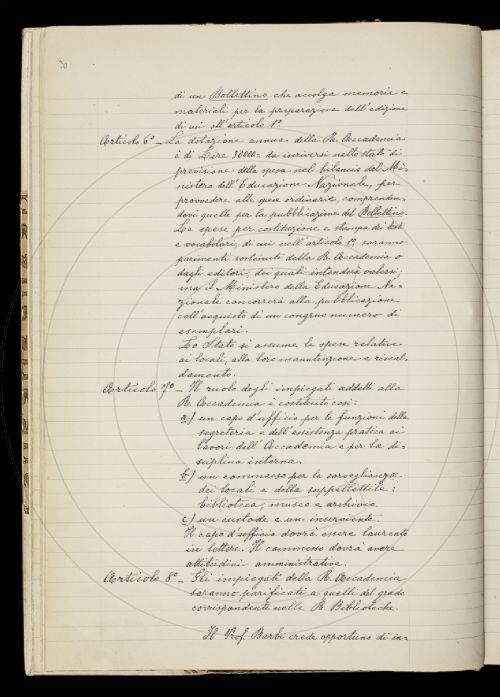 70
di un Bollettino che accolga memorie e
materiali per la preparazione dell'edizione
di cui all'articolo 1°.
Articolo 6° - La dotazione annua della R. Accademia
è di Lire 30000= da inscriversi nello stato di
previsione della spesa nel bilancio del Mi-
nistero dell'Educazione Nazionale, per
provvedere alle spese ordinarie, comprenden-
dovi quelle per la pubblicazione del Bollettino.
Le spese per costituzione e stampa dei testi
e vocabolari, di cui nell'articolo 1°, saranno
parimenti sostenuti dalla R. Accademia o
dagli editori, dei quali intenderà valersi;
ma il Ministero della Educazione Na-
zionale concorrerà alla pubblicazione
coll'acquisto di un congruo numero di
esemplari.
Lo Stato si assume le spese relative
ai locali, alla loro manutenzione e riscal-
damento.
Articolo 7° - Il ruolo degli impiegati addetti alla
R. Accademia è costituito così:
a) un capo d'ufficio per le funzioni della
segreteria e dell'assistenza pratica ai
lavori dell'Accademia e per la di-
sciplina interna.
b) un commesso per la sorveglianza
dei locali e della suppellettile:
biblioteca, museo e archivio.
c) un custode e un inserviente.
Il capo d'ufficio dovrà essere laureato
in lettere. Il commesso dovrà avere
attitudini amministrative.
Articolo 8° - Gli impiegati della R. Accademia
saranno parificati a quelli del grado
corrispondente nelle R. Biblioteche.
Il Prof. Barbi crede opportuno di in-